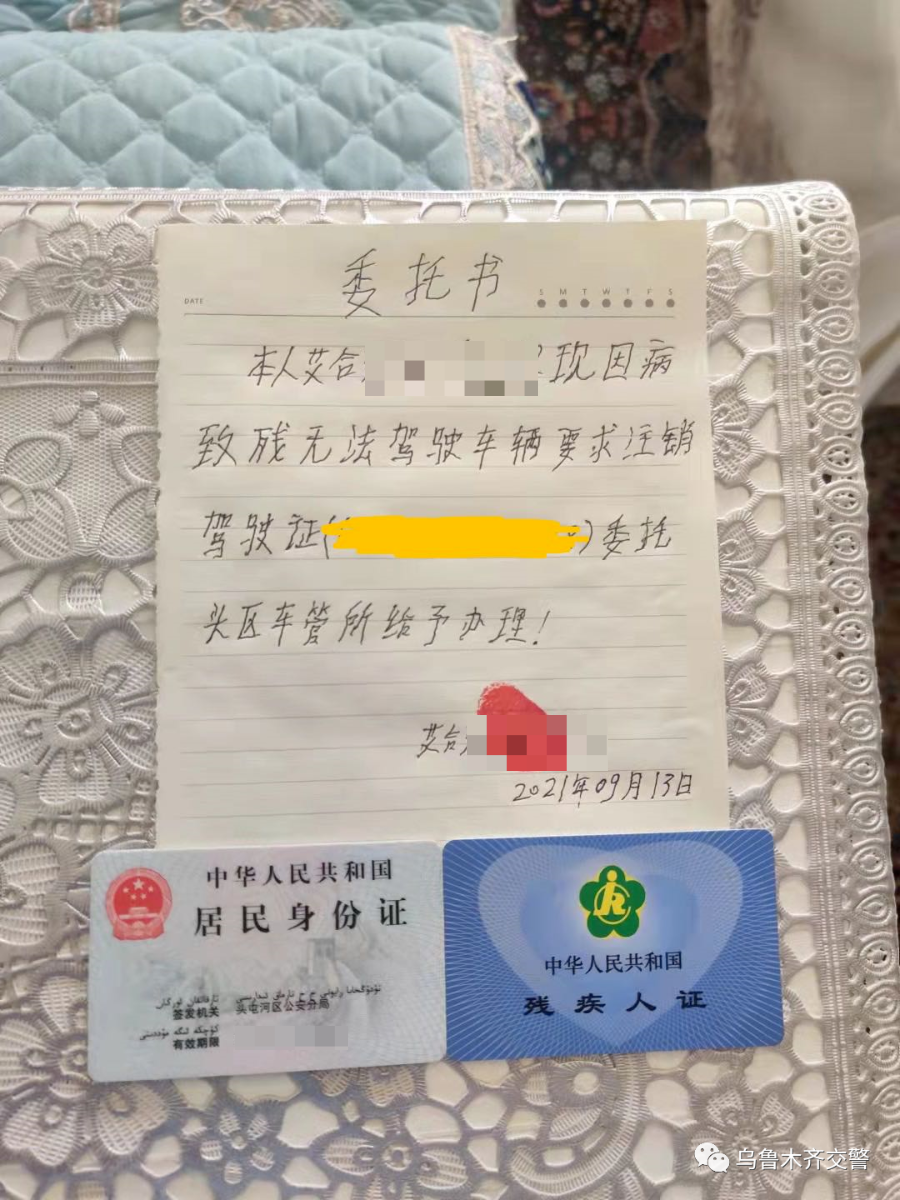 委托书
DATE
S M T W T F S
本人艾合 现因病
致残无法驾驶车辆要求注销
驾驶证( )委托
头区车管所给予办理!
艾合
2021年09月13日
中华人民共和国
居民身份证
签发机关 头屯河区公安分局
有效期限
中华人民共和国
残疾人证
乌鲁木齐交警